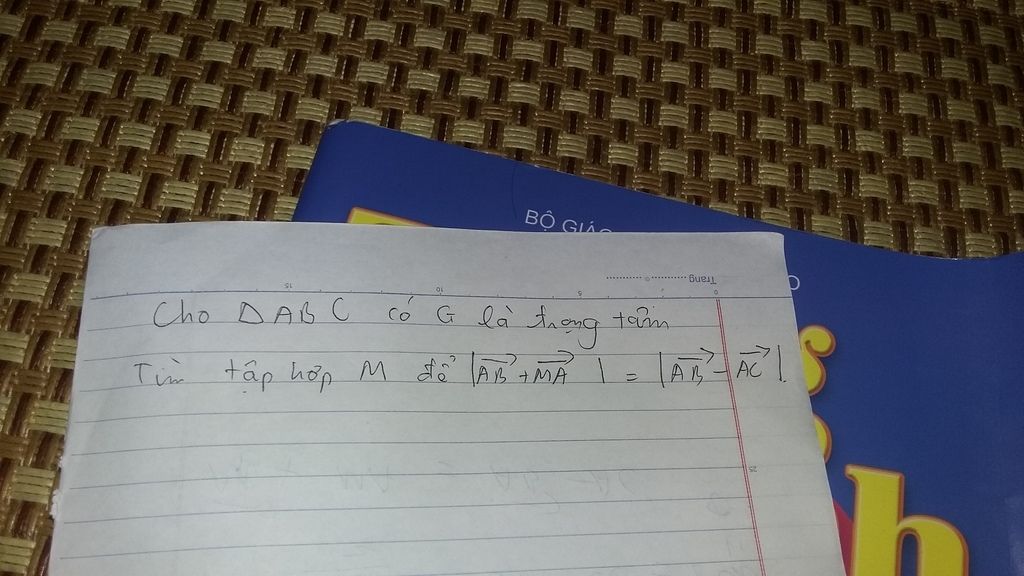 BỘ GIÁO
Trang
15
10
5
0
Cho ΔABC có G là trọng tâm
Tìm tập hợp M để |\overrightarrow{AB} + \overrightarrow{MA}| = |\overrightarrow{AB} - \overrightarrow{AC}|.
h